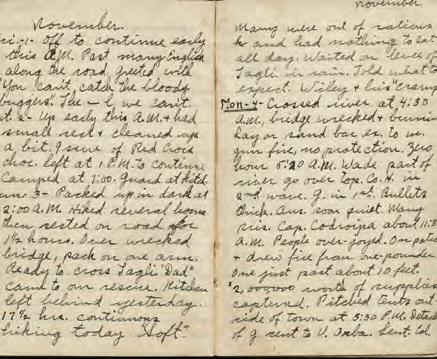 November.
Fri-1- Off to continue early
this A.M. Past many English
along the road, greeted with
"You can't catch the bloody
buggers. The - l we can't.
Sat. 2- Up early this A.M. & had
small rest & cleaned up
a bit. Issue of Red Cross
choc. left at 1 P.M. to continue
Camped at 7:00. Guard at Kitch.
Sun 3- Packed up in dark at
2:00 A.M. Hiked several hours
then rested on road for
1½ hours. Over wrecked
bridge, pack on one arm.
Ready to cross Tagli "Dad"
came to our rescue. Kitchen
left behind yesterday.
17½ hrs. continuous
hiking today "Soft"
November.
Many were out of rations
& and had nothing to eat
all day. Waited on
Tagli in rain. Told what to
expect. Wiley & his cramp
Mon-4- Crossed river at 4:30
A.M. bridge wrecked &
Lay on sand bar
gun fire, no protection. Zero
hour 5:20 A.M. Wade part of
river go over top. Co. H. in
2nd wave. G. in 1st. Bullets
thick. Aus. soon quiet. Many
pris. Cap. Codroipo about 11:
A.M. People over-joyed. On
& drew fire from one-pounder
One just past about 10 feet.
2,000000 worth of supplies
captured. Pitched tents out
side of town at 3:30 P.M.
of G sent to V. Orba. Lent. Col